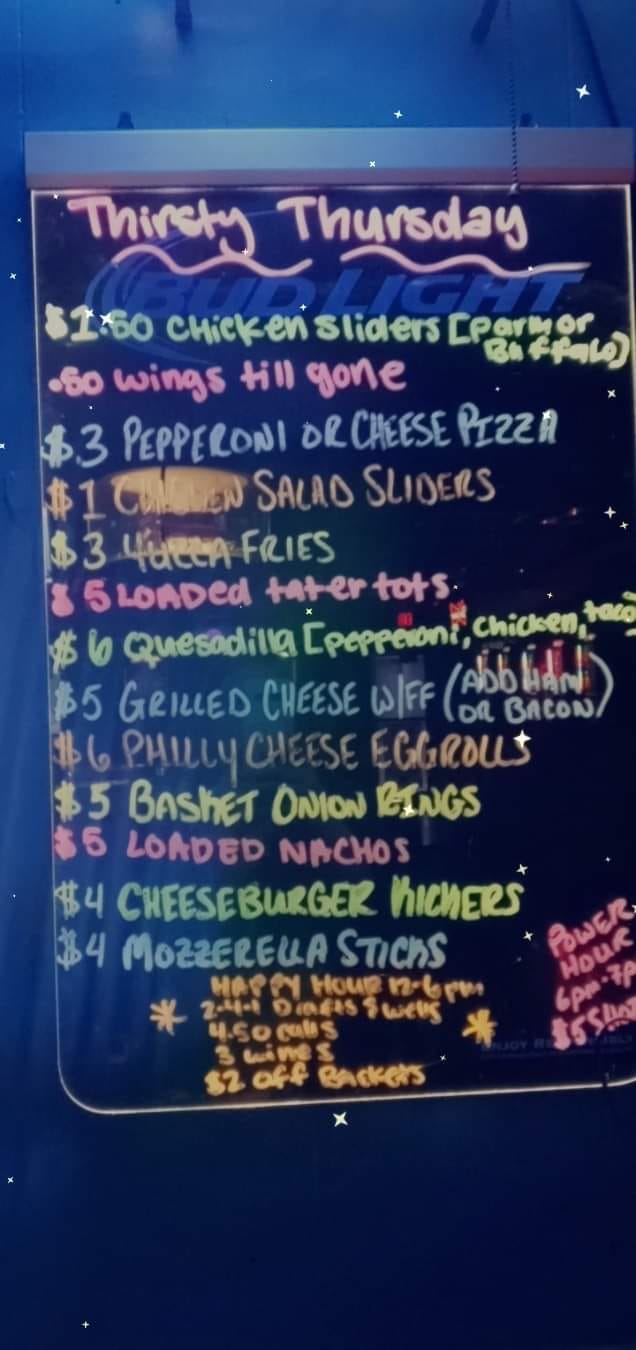 Thirsty Thursday
BUD LIGHT
$1.50 Chicken Sliders [parm or
Buffalo]
.50 wings till gone
$.3 PEPPERONI OR CHEESE PIZZA
$1 CHICKEN SALAD SLIDERS
$3 YUCCA FRIES
$5 LOADed tater tots
$6 Quesadilla [pepperoni, chicken, taco
$5 GRILLED CHEESE W/FF (ADD HAM
OR BACON)
$6 PHILLY CHEESE EGGROLLS
$5 BASKET ONION RINGS
$5 LOADED NACHOS
$4 CHEESEBURGER KICKERS
$4 MOZZERELLA STICKS
HAPPY HOUR 12-6pm
2-4-1 Drafts & wells
4.50 calls
3 wines
$2 off Buckets
POWER
HOUR
6pm-7p
$5